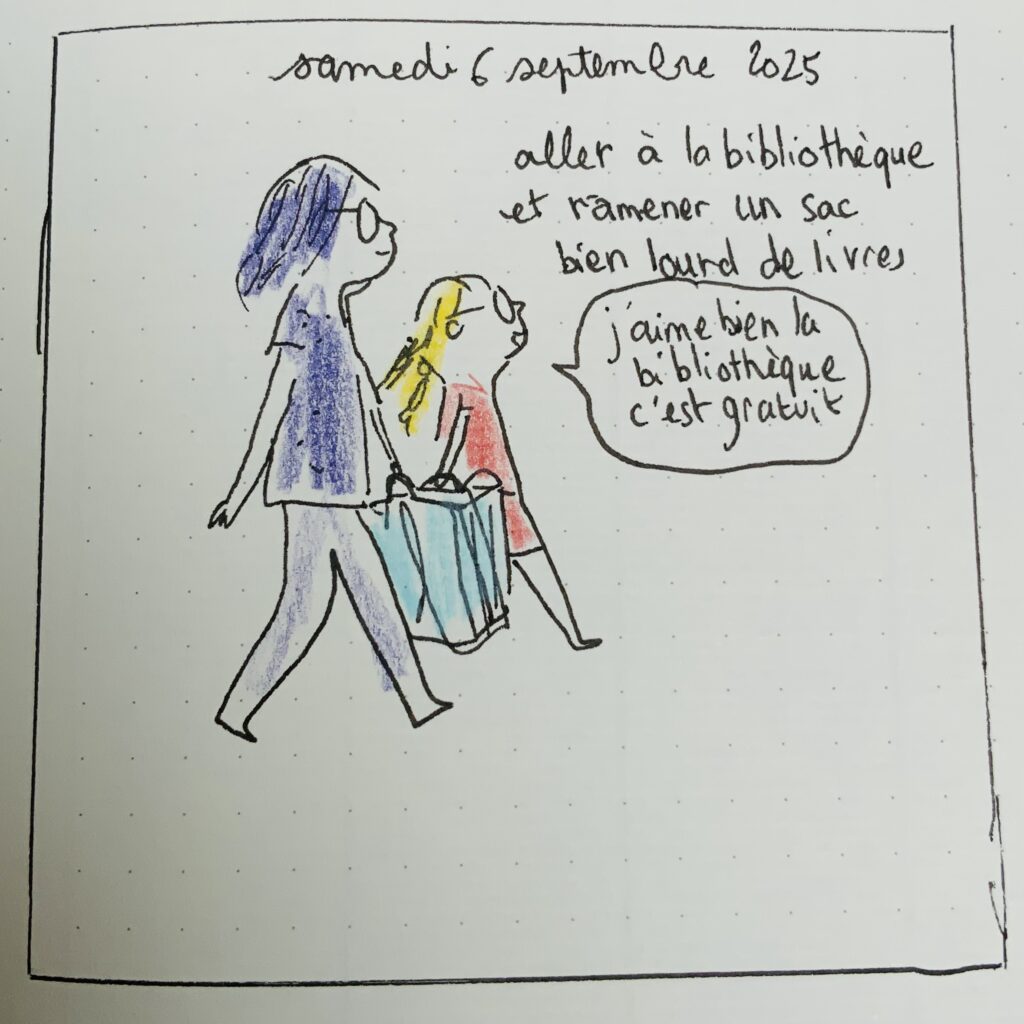 samedi 6 septembre 2025
aller à la bibliothèque
et ramener un sac
bien lourd de livres
j'aime bien la
bibliothèque
c'est gratuit